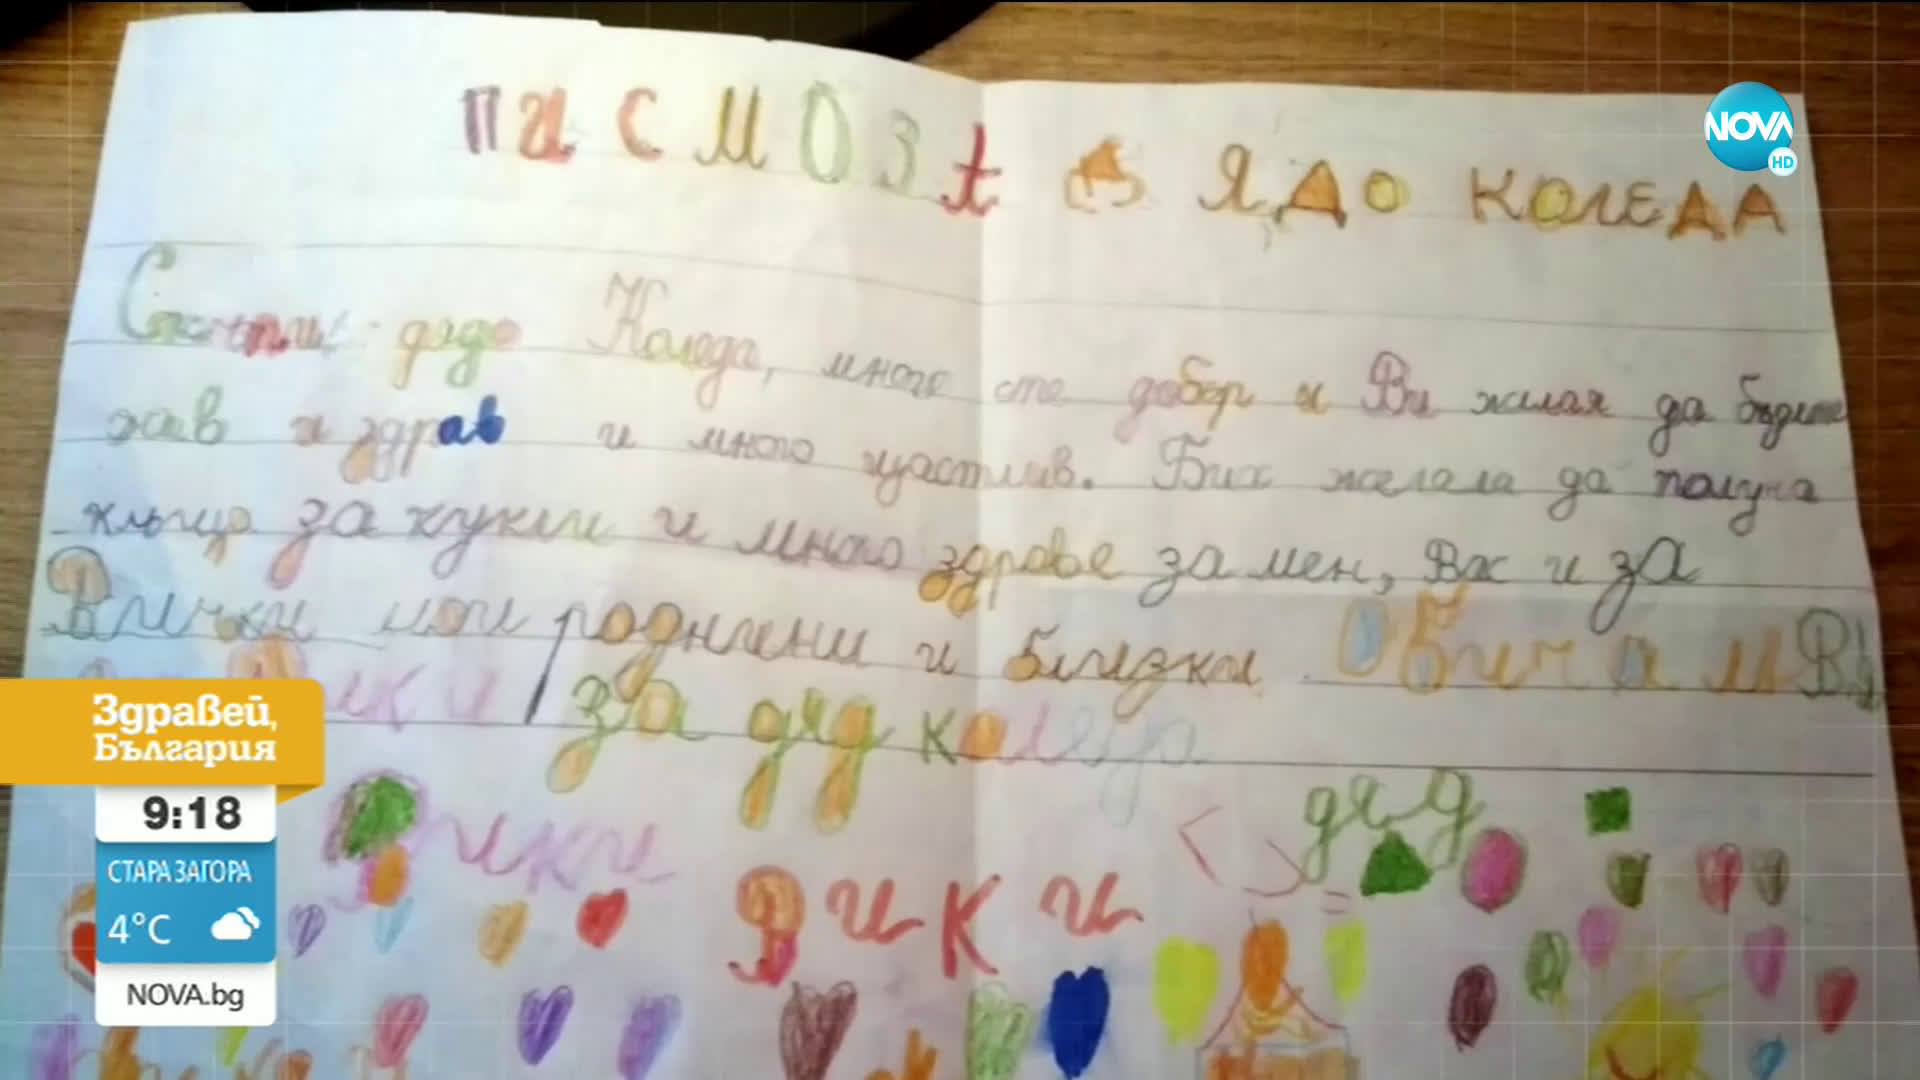 NOVA
HD
ПИСМО ЗА ДЯДО КОЛЕДА
дядо Коледа, много сте добър и Ви желая да бъдете
жив и здрав и много щастлив. Бих желала да получа
къща за кукли и много здраве за мен, Вк и за
Всички мои роднини и близки. Обичам Ви
за дяд коледа
дяд
Вики
Здравей,
България
9:18
СТАРА ЗАГОРА
4°C
NOVA.bg